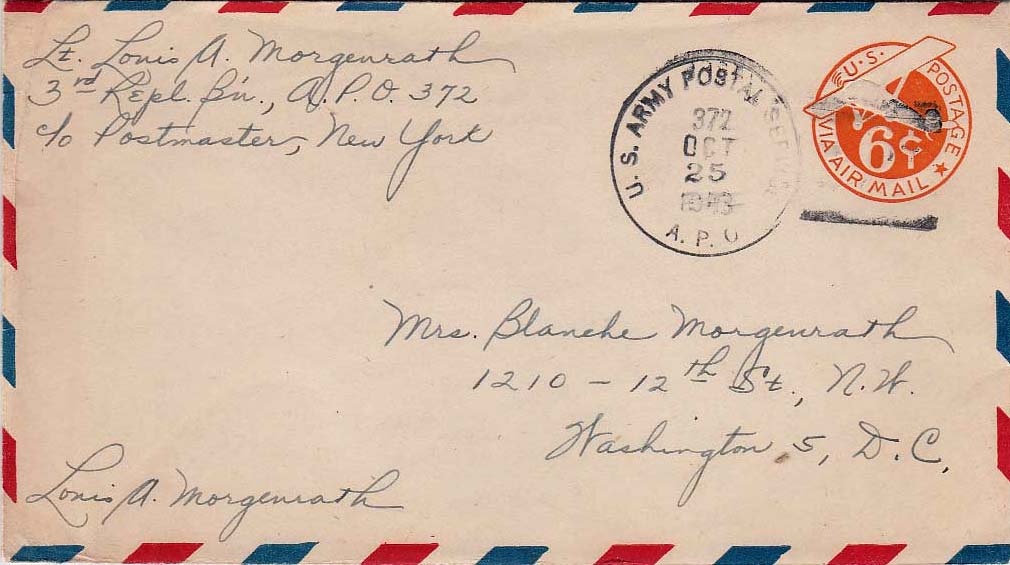 Lt. Louis A. Morgenrath
3rd Repl. Bn., A.P.O. 372
c/o Postmaster, New York
U.S. ARMY POSTAL SERVICE
372
OCT
25
1943
A.P.O
U.S. POSTAGE
6¢
VIA AIR MAIL
Mrs. Blanche Morgenrath
1210 - 12th St., N.W.
Washington 5, D.C.
Louis A. Morgenrath